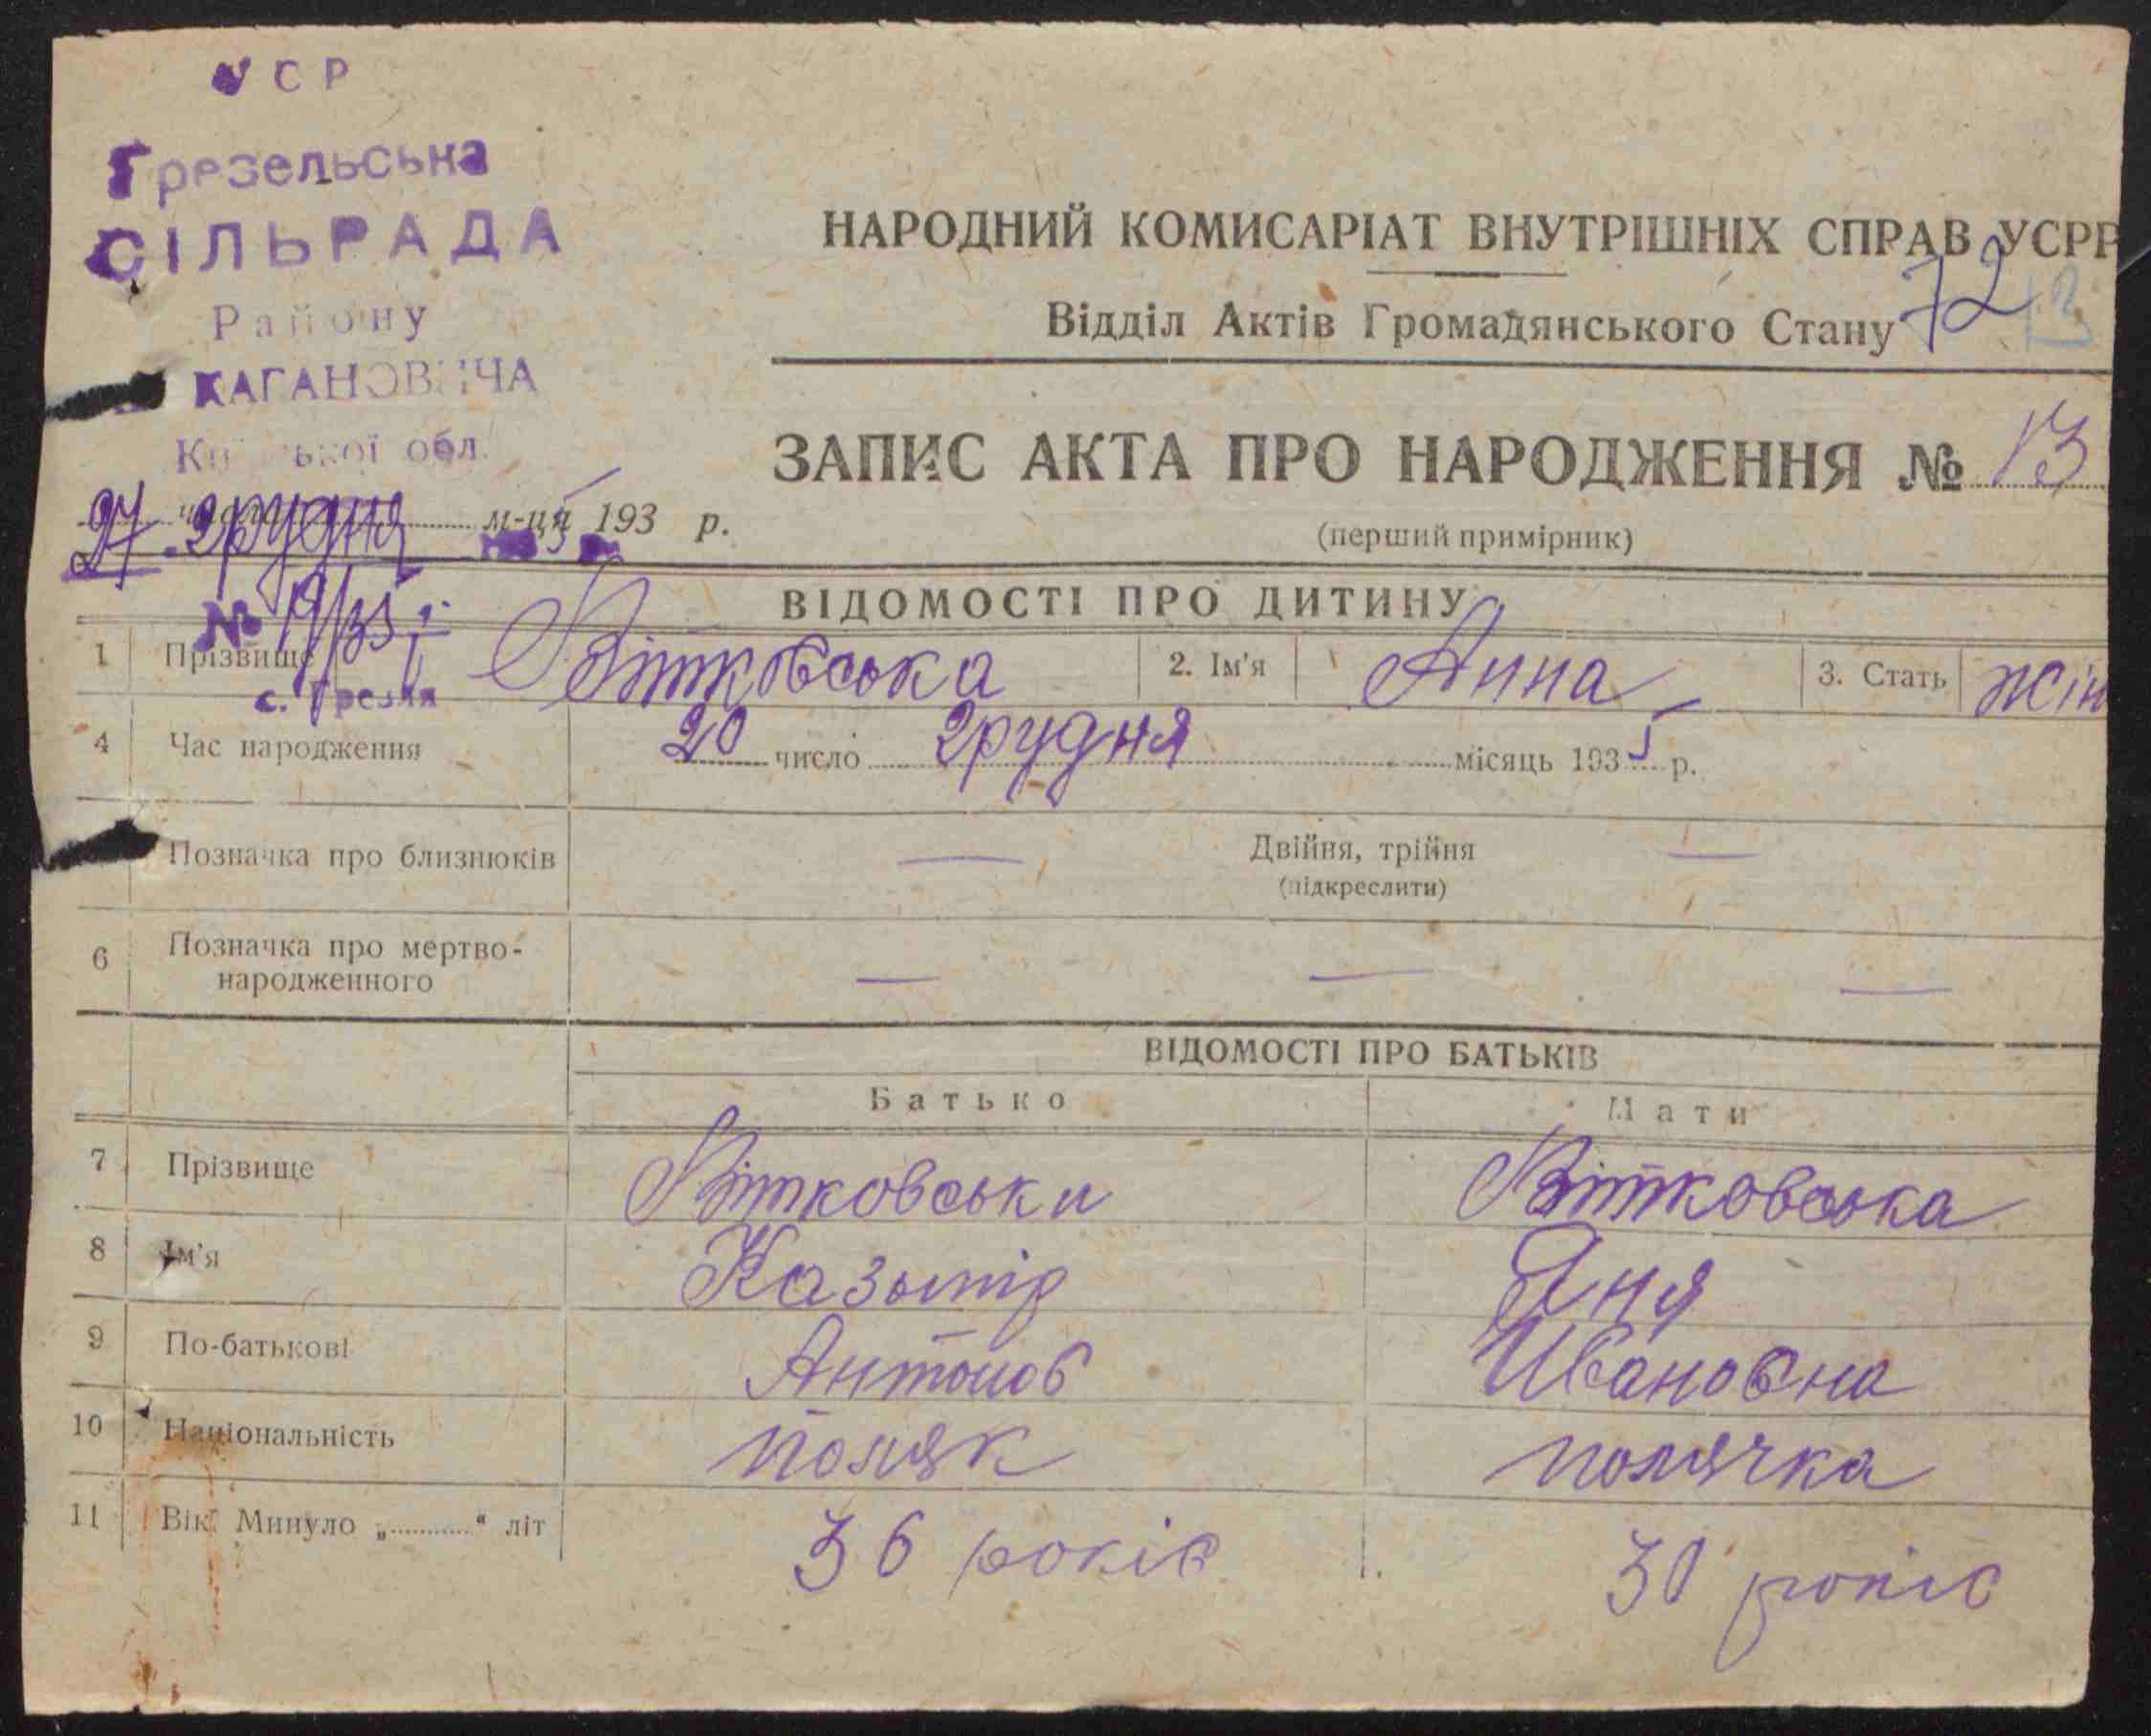 УСР
Грезельська
СІЛЬРАДА
Району
КАГАНОВИЧА
Київської обл.
27 грудня м-ця 1935 р.
№ 19/35 р.
с. Грезля
НАРОДНИЙ КОМИСАРІАТ ВНУТРІШНІХ СПРАВ УСРР
Відділ Актів Громадянського Стану 72 13
ЗАПИС АКТА ПРО НАРОДЖЕННЯ № 13
(перший примірник)
ВІДОМОСТІ ПРО ДИТИНУ
1 Прізвище Вітковська 2. Ім'я Анна 3. Стать жін
4 Час народження 20 число грудня місяць 1935 р.
Позначка про близнюків — Двійня, трійня —
(підкреслити)
6 Позначка про мертво-
народженного — — —
ВІДОМОСТІ ПРО БАТЬКІВ
Батько Мати
7 Прізвище Вітковськи Вітковська
8 Ім'я Казымір Яня
9 По-батькові Антонов Ивановна
10 Національність поляк полячка
11 Вік. Минуло „ “ літ 36 років 30 років